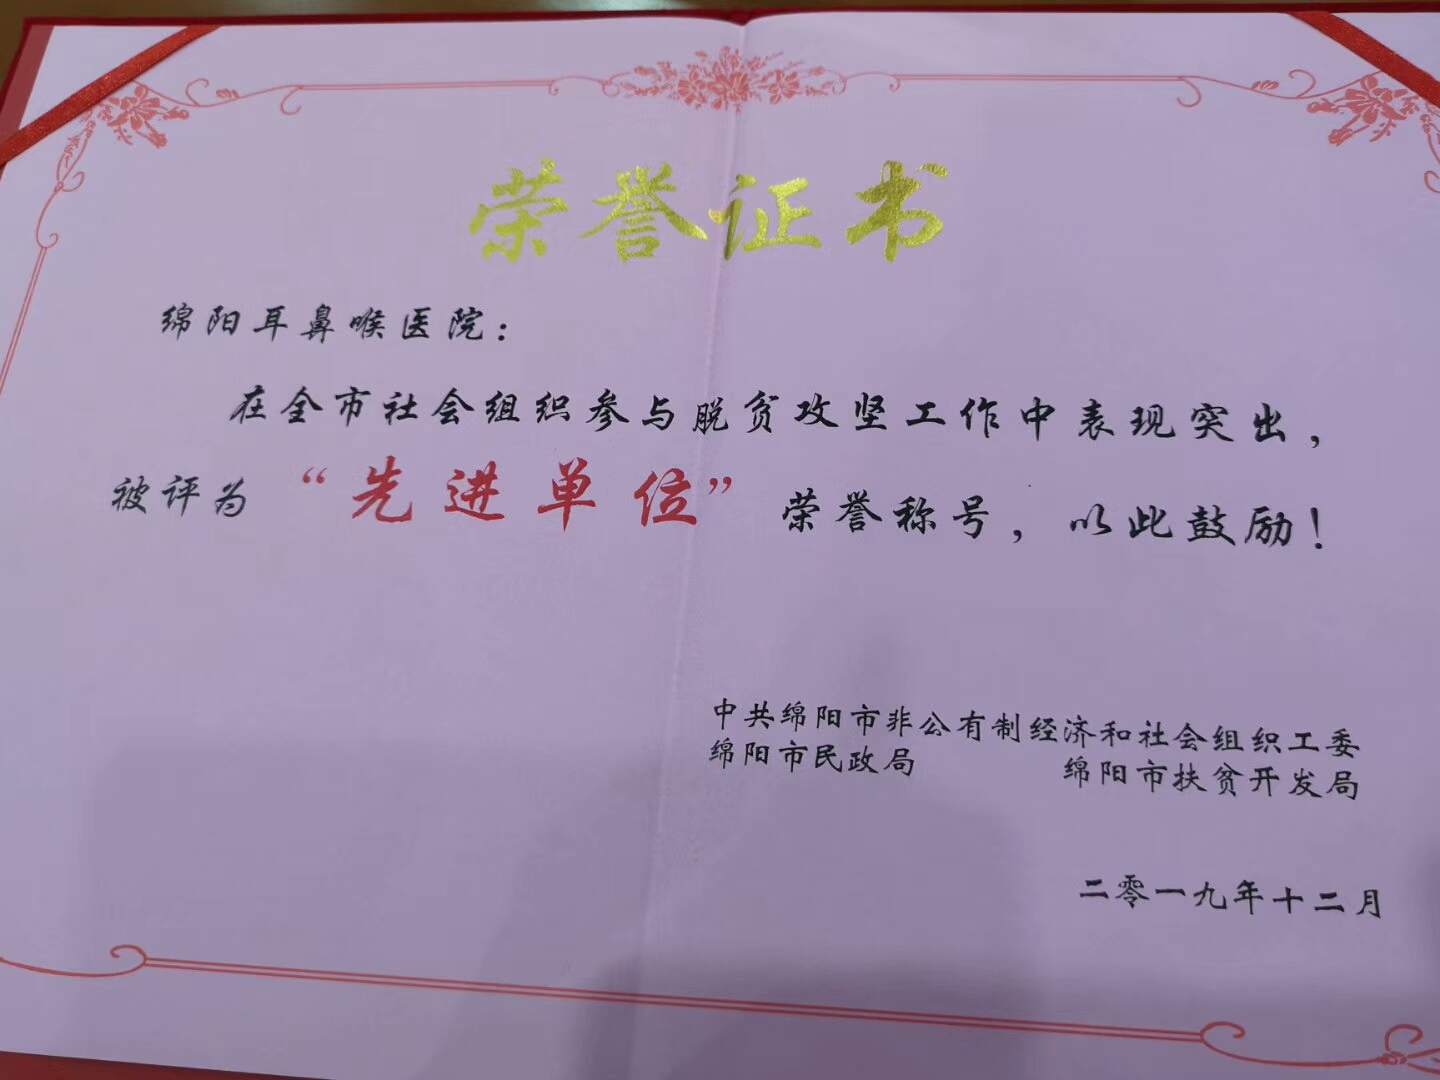 荣誉证书
绵阳耳鼻喉医院：
在全市社会组织参与脱贫攻坚工作中表现突出，
被评为“先进单位”荣誉称号，以此鼓励！
中共绵阳市非公有制经济和社会组织工委
绵阳市民政局 绵阳市扶贫开发局
二零一九年十二月